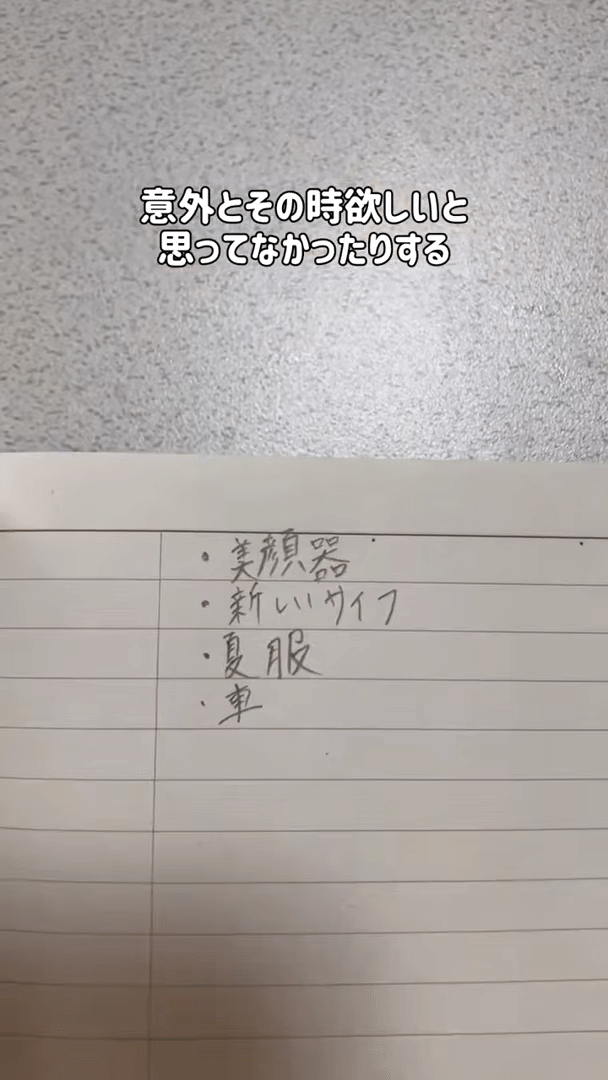 意外とその時欲しいと
思ってなかったりする
・美顔器
・新しいサイフ
・夏服
・車